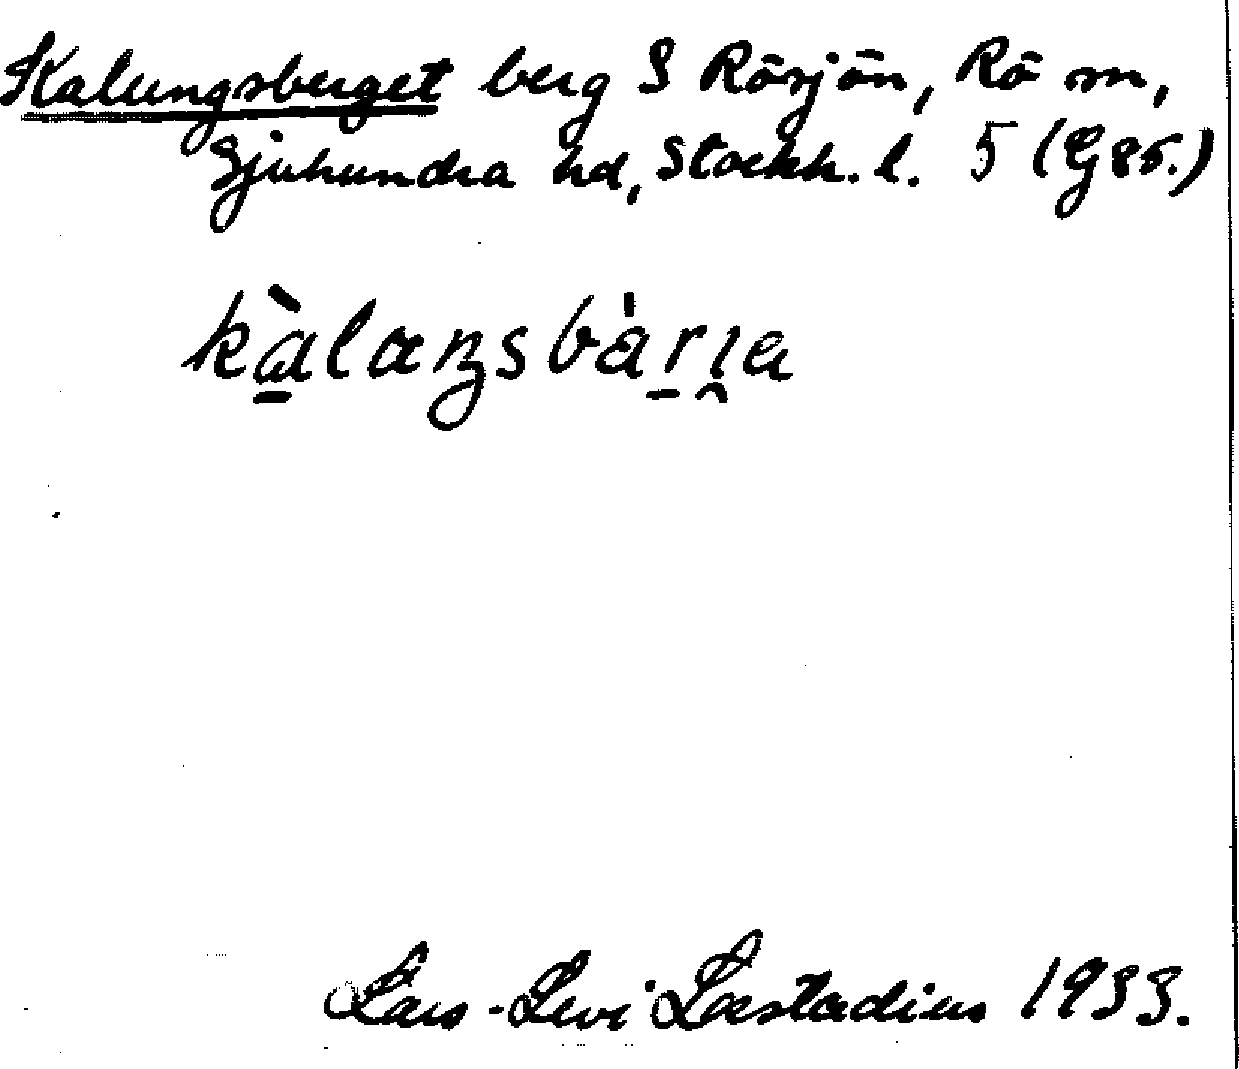 Kalungsberget berg S Rösjön, Rö sn,
Sjuhundra hd, Stockh. l. 5 (G 85.)
kàlaŋsbàrı̯a
Lars-Levi Læstadius 1933.